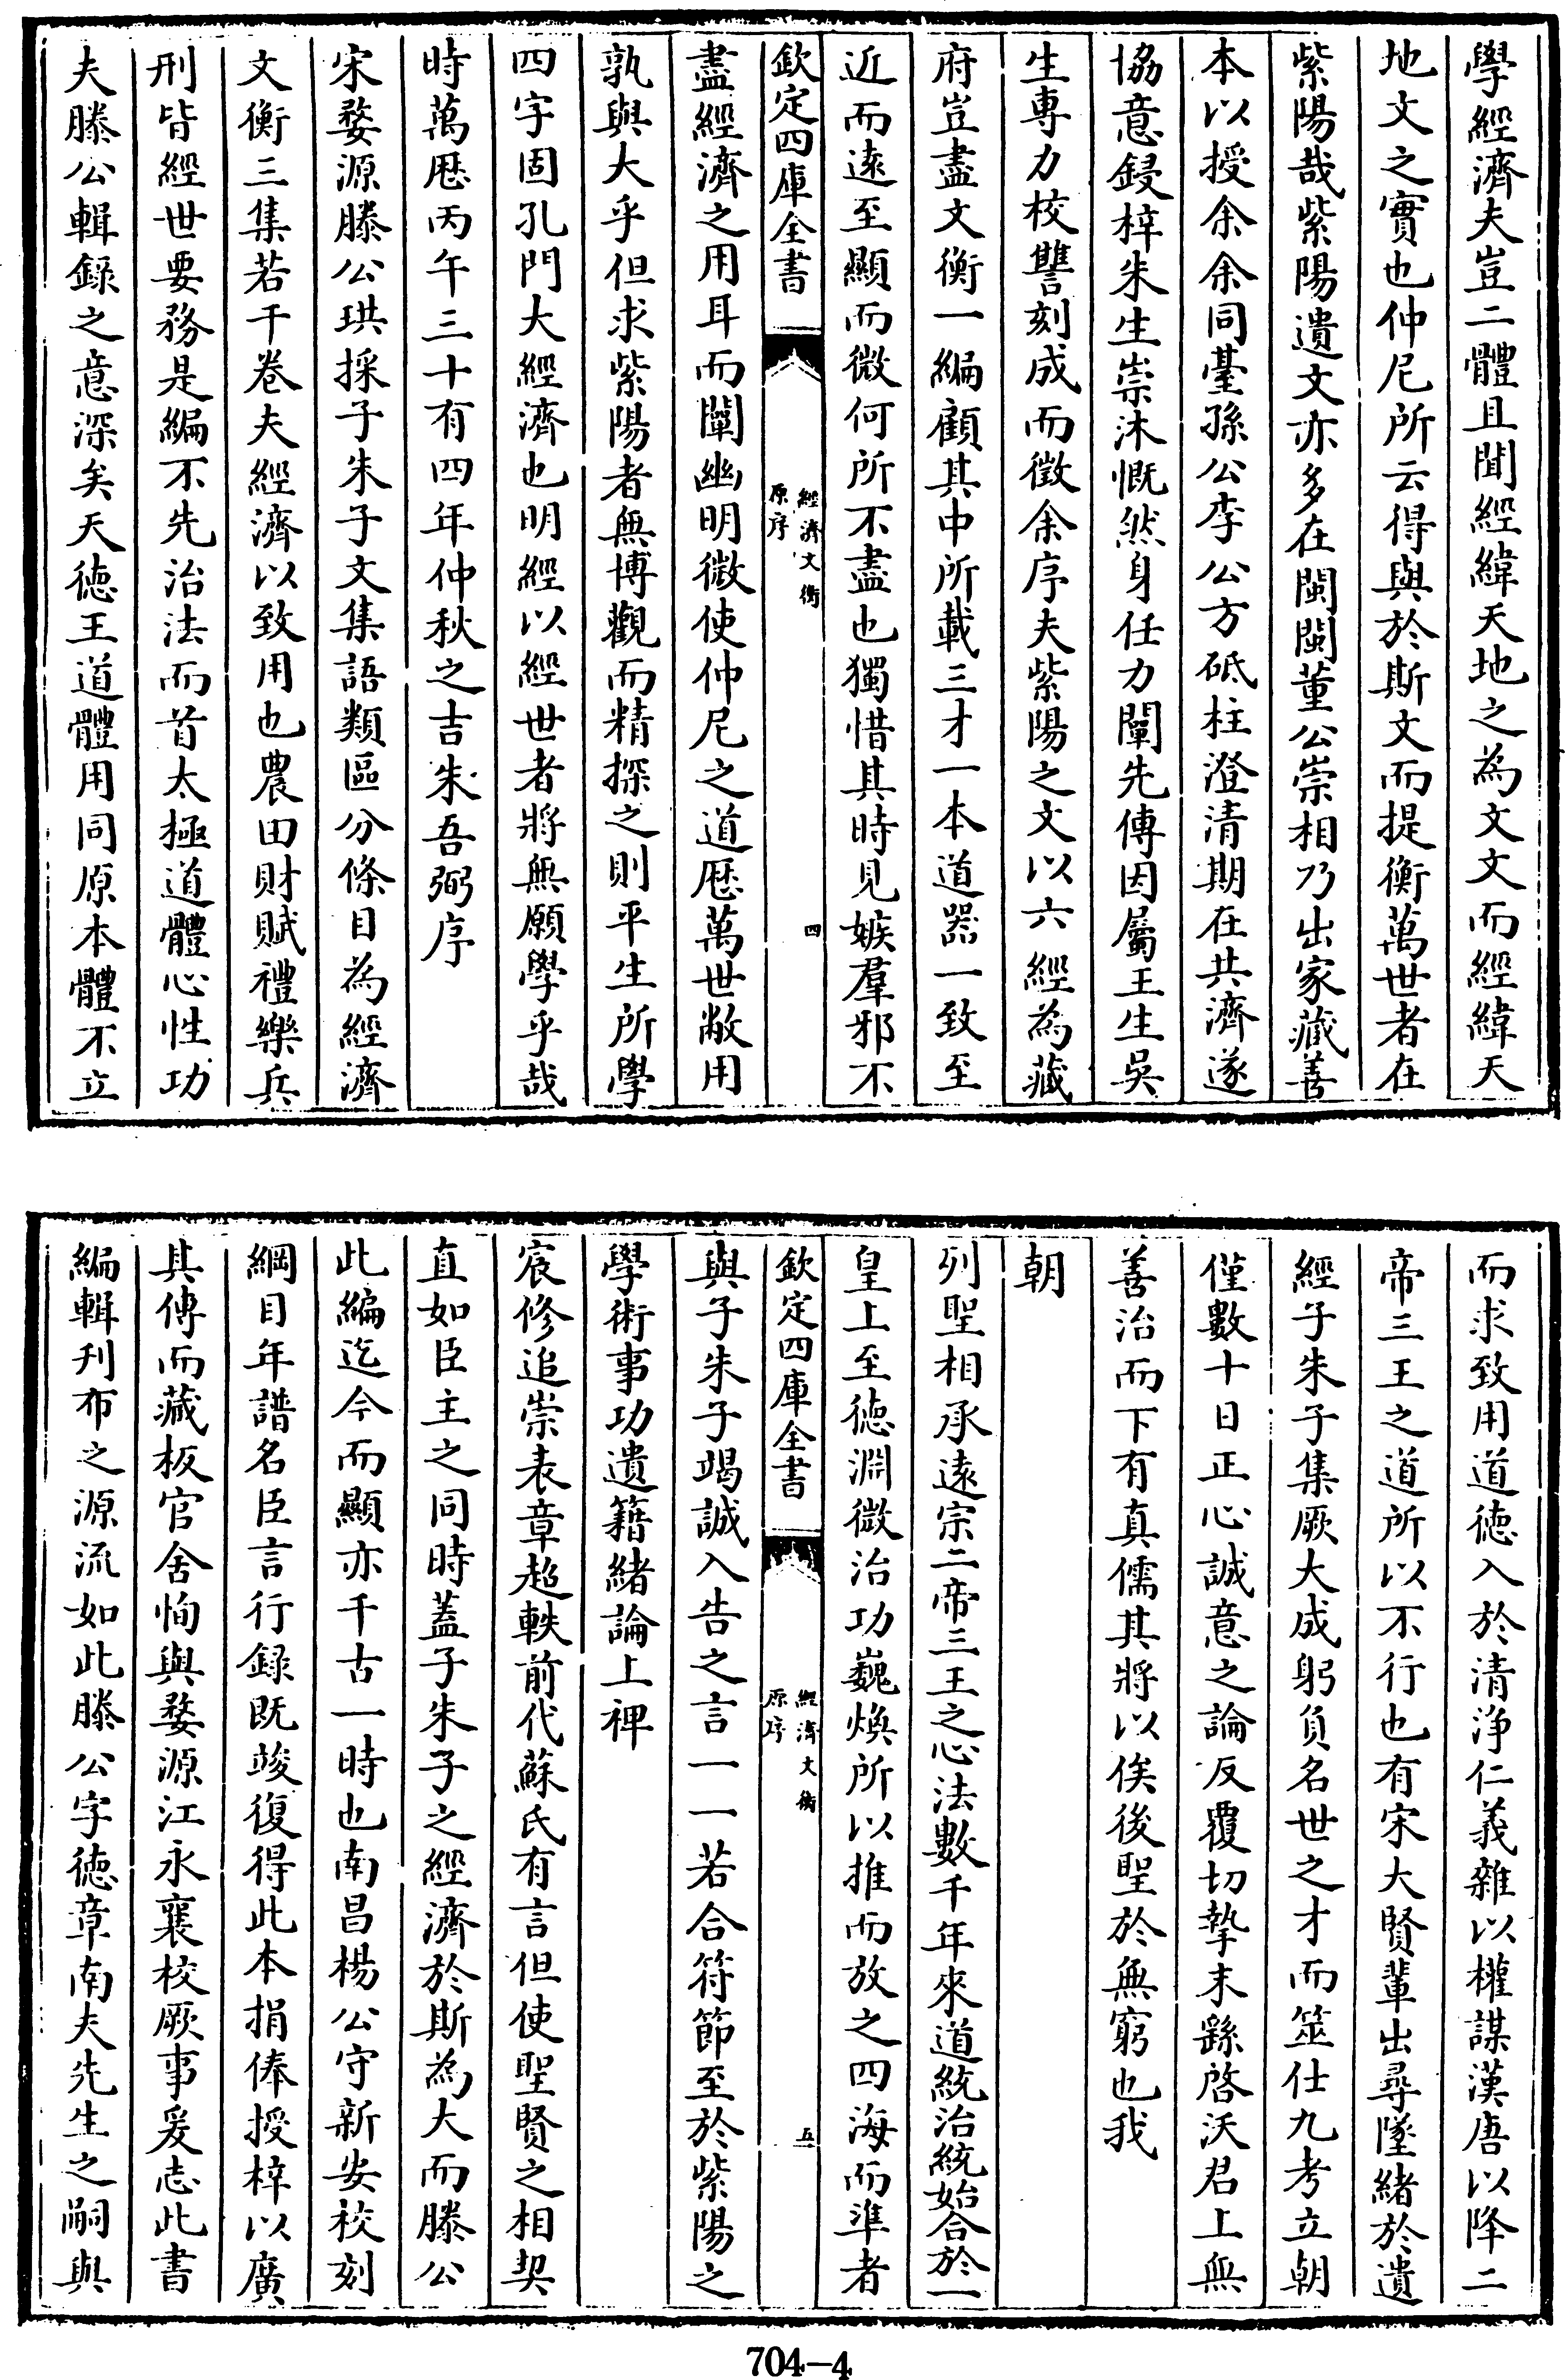 學經濟夫豈二體且聞經緯天地之為文文而經緯天
地文之實也仲尼所云得與於斯文而提衡萬世者在
紫陽哉紫陽遺文亦多在閩閩董公崇相乃出家藏善
本以授余余同臺孫公李公方砥柱澄清期在共濟遂
協意鋟梓朱生崇沐慨然身任力闡先傳因屬王生吳
生專力校讐刻成而徵余序夫紫陽之文以六經為藏
府豈盡文衡一編顧其中所載三才一本道器一致至
近而遠至顯而微何所不盡也獨惜其時見嫉羣邪不
欽定四庫全書
經濟文衡
原序
四
盡經濟之用耳而闡幽明微使仲尼之道歷萬世敝用
孰與大乎但求紫陽者無博觀而精探之則平生所學
四字固孔門大經濟也明經以經世者將無願學乎哉
時萬厯丙午三十有四年仲秋之吉朱吾弼序
宋婺源滕公珙採子朱子文集語類區分條目為經濟
文衡三集若干卷夫經濟以致用也農田財賦禮樂兵
刑皆經世要務是編不先治法而首太極道體心性功
夫滕公輯録之意深矣天德王道體用同原本體不立
而求致用道徳入於清浄仁義雜以權謀漢唐以降二
帝三王之道所以不行也有宋大賢輩出尋墜緒於遺
經子朱子集厥大成躬負名世之才而筮仕九考立朝
僅數十日正心誠意之論反覆切摯末繇啓沃君上無
善治而下有真儒其將以俟後聖於無窮也我
朝
列聖相承遠宗二帝三王之心法數千年來道統治統始合於一
皇上至徳淵微治功巍煥所以推而放之四海而準者
欽定四庫全書
經濟文衡
原序
五
與子朱子竭誠入告之言一一若合符節至於紫陽之
學術事功遺籍緒論上裨
宸修追崇表章超軼前代蘇氏有言但使聖賢之相契
直如臣主之同時蓋子朱子之經濟於斯為大而滕公
此編迄今而顯亦千古一時也南昌楊公守新安校刻
綱目年譜名臣言行録既竣復得此本捐俸授梓以廣
其傳而藏板官舍恂與婺源江永襄校厥事爰志此書
編輯刋布之源流如此滕公字徳章南夫先生之嗣與
704-4